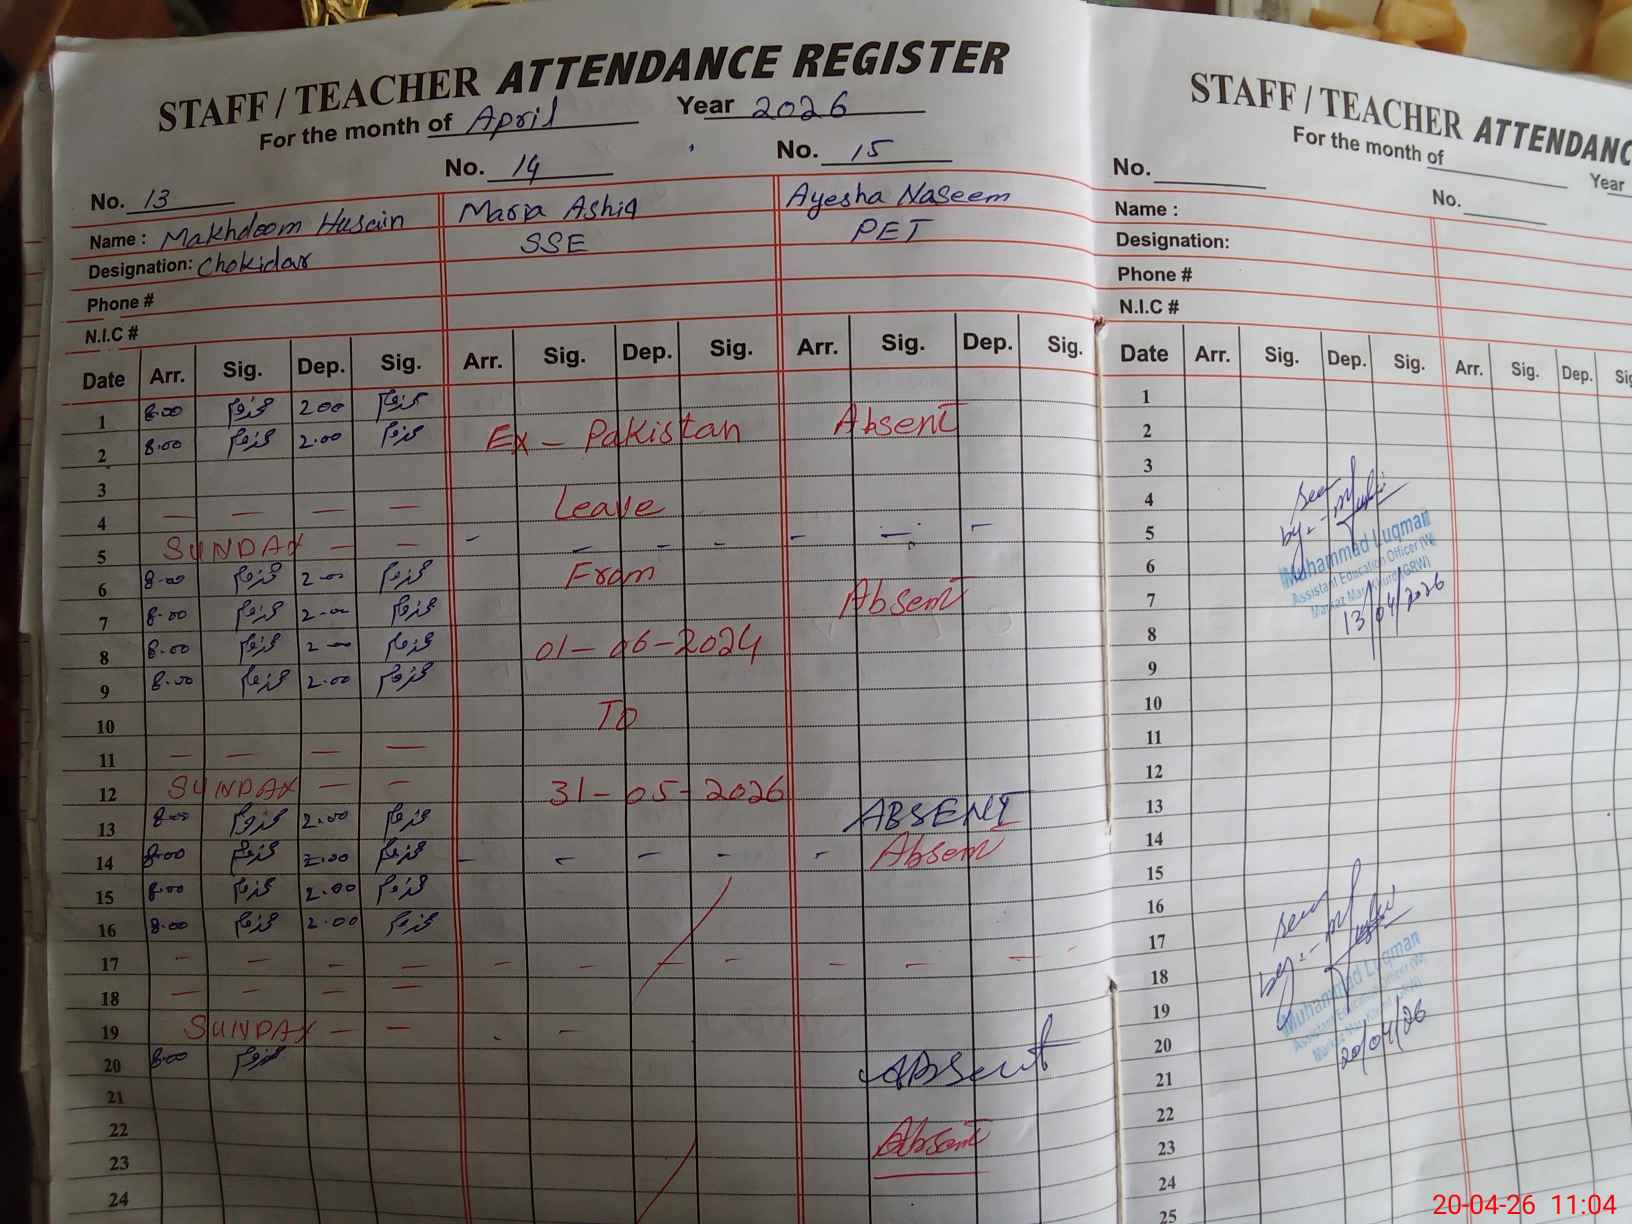 STAFF / TEACHER ATTENDANCE REGISTER
For the month of April Year 2026
No. 13 No. 14 No. 15
Name : Makhdoom Husain Maria Ashiq Ayesha Naseem
Designation: Chokidar SSE PET
Phone #
N.I.C #
Date Arr. Sig. Dep. Sig. Arr. Sig. Dep. Sig. Arr. Sig. Dep. Sig.
1 8:00 مخدوم 2.00 مخدوم
2 8:00 مخدوم 2.00 مخدوم Ex - Pakistan Absent
3
4 — — — — Leave
5 SUNDAY — — - - - - - - -
6 8:00 مخدوم 2-00 مخدوم From
7 8:00 مخدوم 2-00 مخدوم Absent
8 8:00 مخدوم 2-00 مخدوم 01-06-2024
9 8:00 مخدوم 2.00 مخدوم
10 To
11 — — — —
12 SUNDAY — — 31-05-2026
13 8:00 مخدوم 2.00 مخدوم ABSENT
14 8:00 مخدوم 2.00 مخدوم - - - - - Absent
15 8:00 مخدوم 2.00 مخدوم
16 8:00 مخدوم 2.00 مخدوم
17 - - - - - - - - - - -
18 — — — —
19 SUNDAY — — -
20 8:00 مخدوم Absent
21
22 Absent
23
24
STAFF / TEACHER ATTENDANC
For the month of Year
No. No.
Name :
Designation:
Phone #
N.I.C #
Date Arr. Sig. Dep. Sig. Arr. Sig. Dep. Sig
1
2
3
4 Seen
5 by:-
6 Muhammad Luqman
7 Assistant Education Officer (W)
8 13/04/2026
9
10
11
12
13
14
15
16 seen
17 by:-
18 Muhammad Luqman
19
20 20/04/26
21
22
23
24
25
20-04-26 11:04